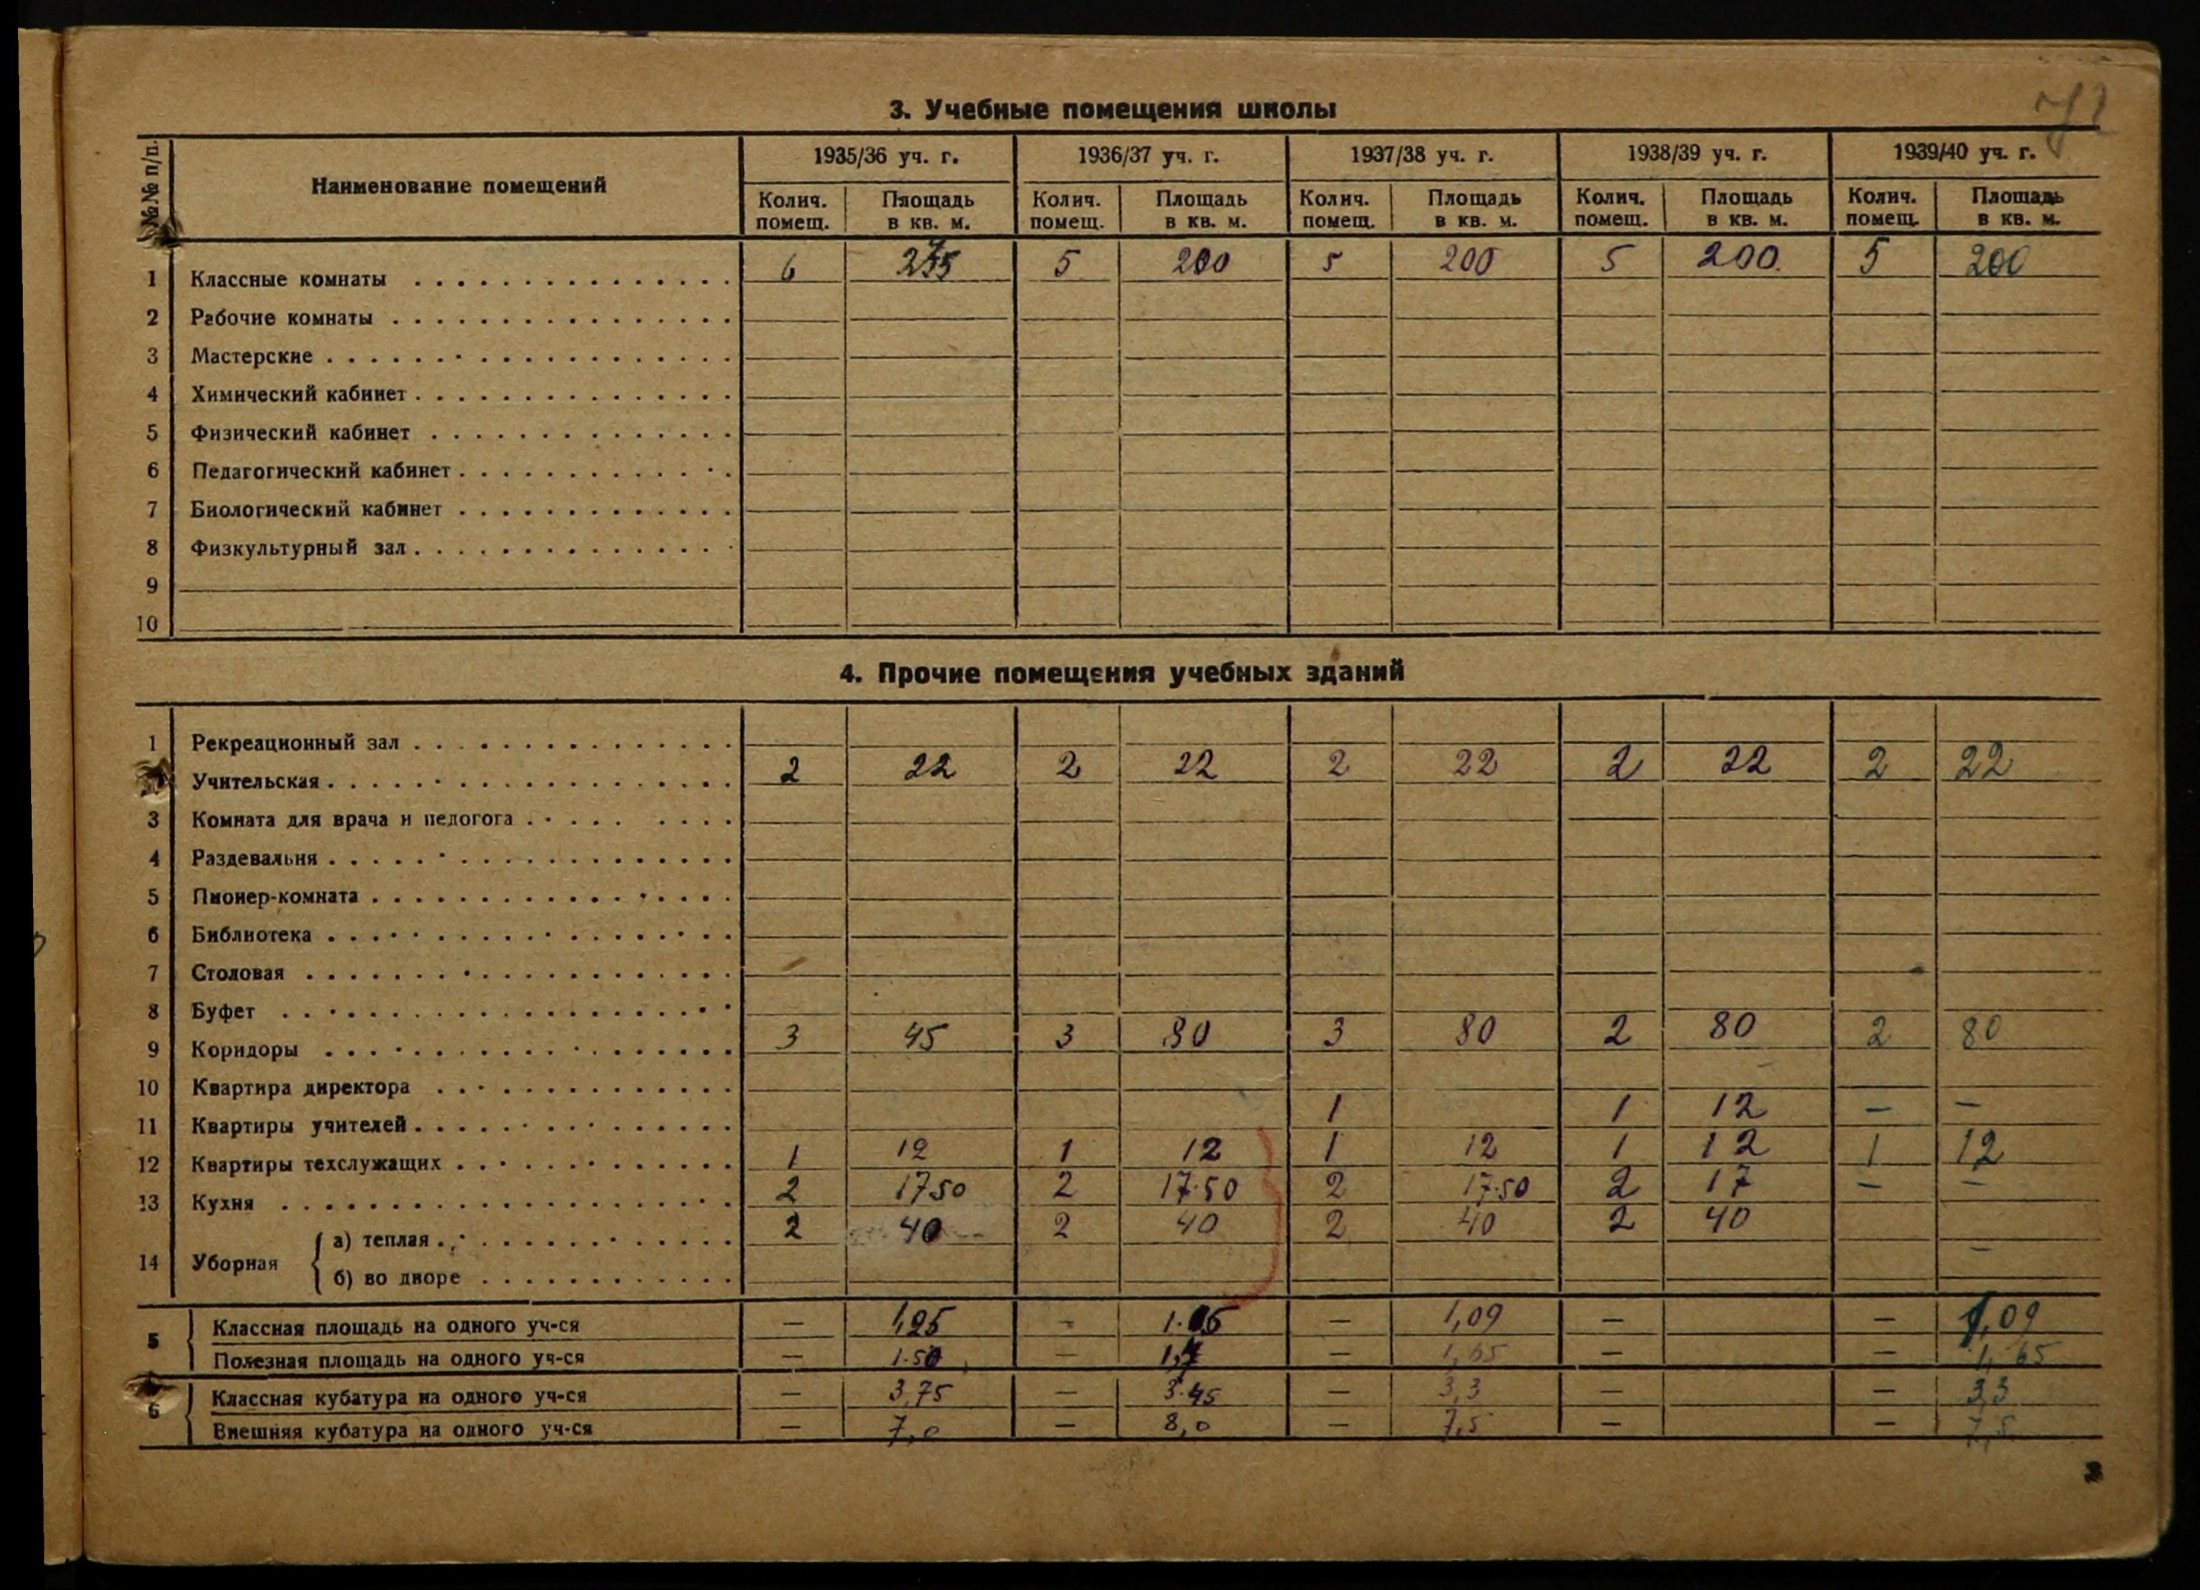 3. Учебные помещения школы
№№ п/п. Наименование помещений 1935/36 уч. г. 1936/37 уч. г. 1937/38 уч. г. 1938/39 уч. г. 1939/40 уч. г.
Колич. помещ. Площадь в кв. м. Колич. помещ. Площадь в кв. м. Колич. помещ. Площадь в кв. м. Колич. помещ. Площадь в кв. м. Колич. помещ. Площадь в кв. м.
1 Классные комнаты 6 5 200 5 200 5 200 5 200
2 Рабочие комнаты
3 Мастерские
4 Химический кабинет
5 Физический кабинет
6 Педагогический кабинет
7 Биологический кабинет
8 Физкультурный зал
9
10
4. Прочие помещения учебных зданий
1 Рекреационный зал
Учительская 2 22 2 22 2 22 2 22 2 22
3 Комната для врача и педогога
4 Раздевальня
5 Пионер-комната
6 Библиотека
7 Столовая
8 Буфет
9 Коридоры 3 45 3 80 3 80 2 80 2 80
10 Квартира директора
11 Квартиры учителей 1 1 12 — —
12 Квартиры техслужащих 1 12 1 12 1 12 1 12 1 12
13 Кухня 2 17.50 2 17.50 2 17.50 2 17 — —
14 Уборная а) теплая 2 40 2 40 2 40 2 40
б) во дворе —
5 Классная площадь на одного уч-ся — 1,25 — — 1,09 — — 1,09
Полезная площадь на одного уч-ся — 1.50 — — 1,65 — — 1,65
6 Классная кубатура на одного уч-ся — 3,75 — 3.45 — 3,3 — — 3,3
Внешняя кубатура на одного уч-ся — 7,0 — 8,0 — 7,5 — — 7,5
3